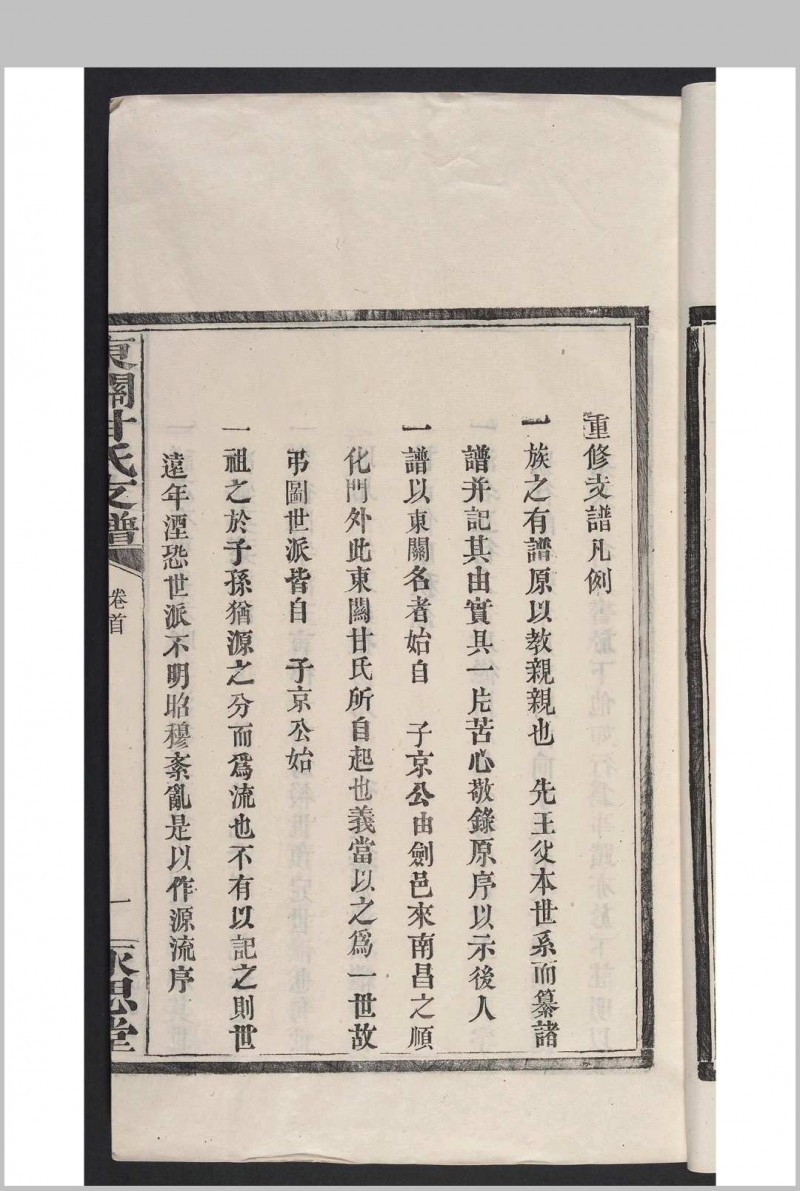 重修支譜凡例
一族之有譜原以教親親也　先王父本世系而纂諸
譜并記其由實具一片苦心敬錄原序以示後人
一譜以東關名者始自　子京公由劍邑來南昌之順
化門外此東關甘氏所自起也義當以之爲一世故
弔圖世派皆自　子京公始
一祖之於子孫猶源之分而爲流也不有以記之則世
遠年湮恐世派不明昭穆紊亂是以作源流序
東關甘氏支譜
卷首
一
永思堂